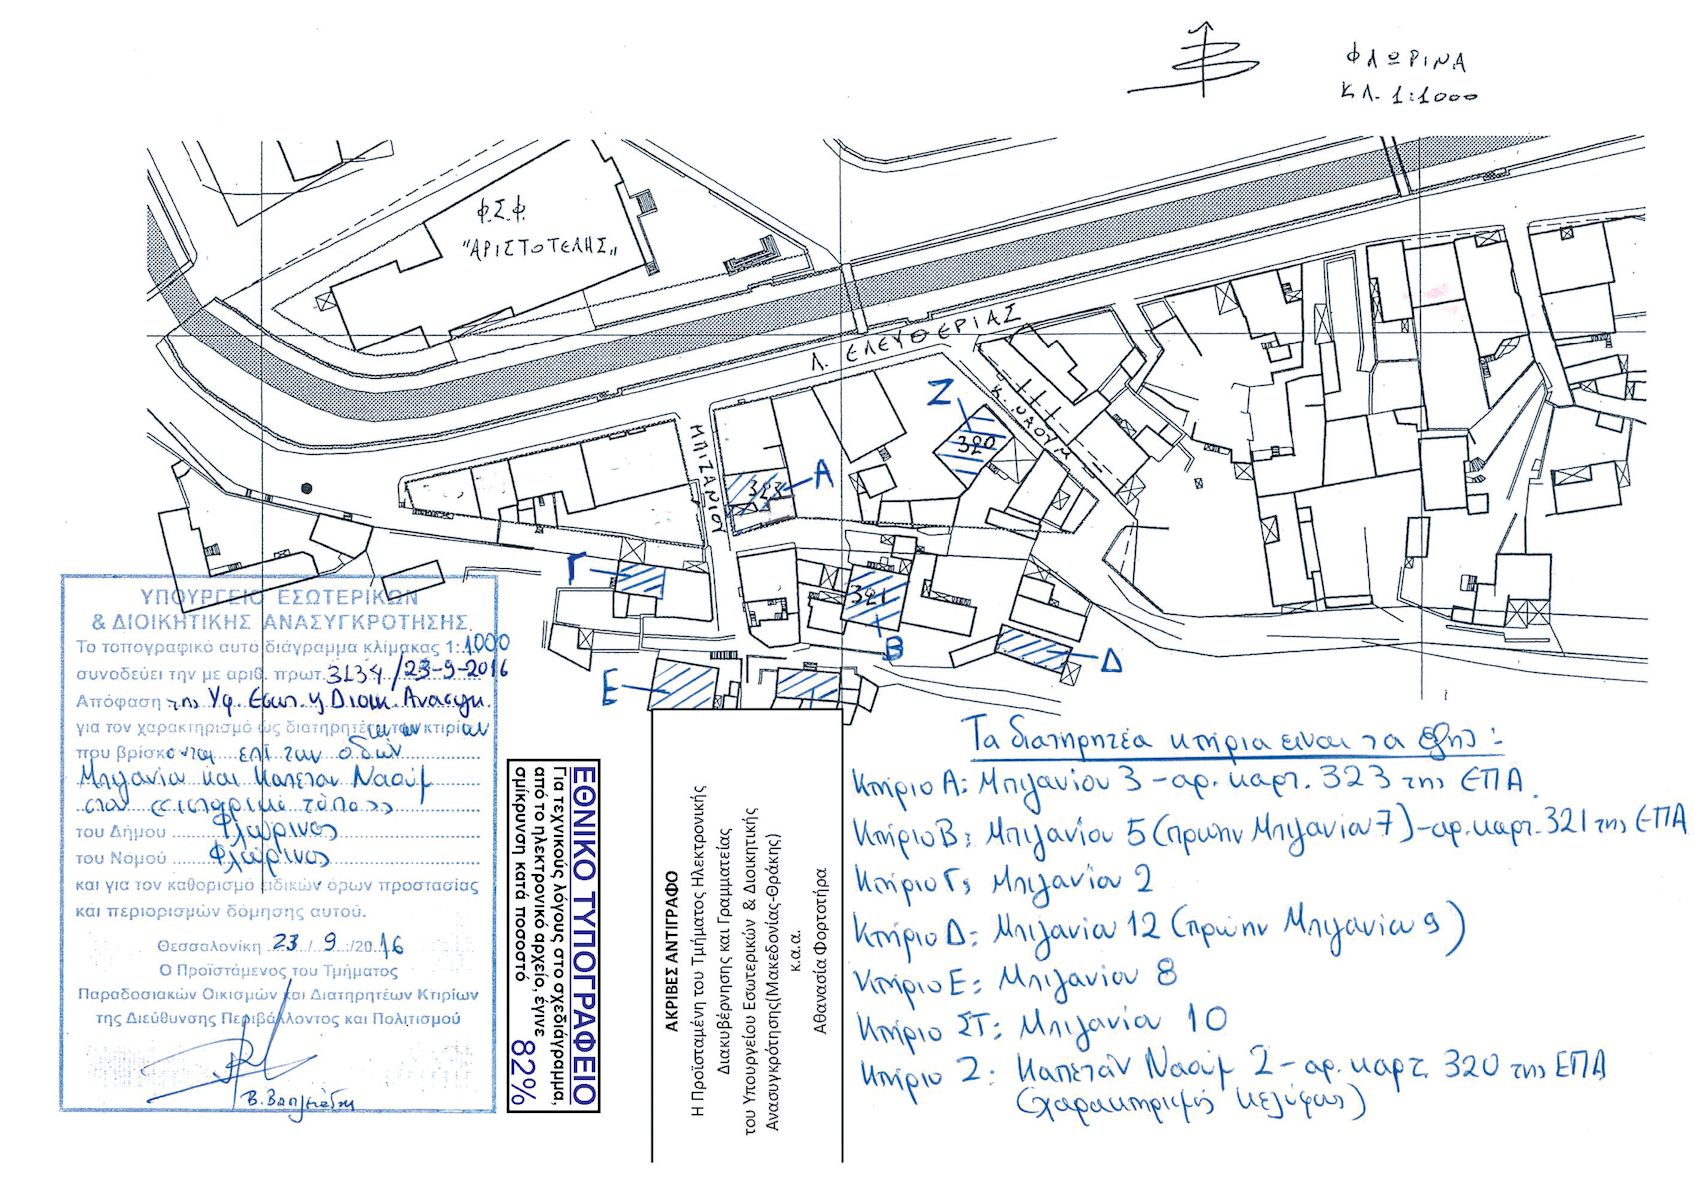 ΦΛΩΡΙΝΑ
ΚΛ. 1:1000
Φ.Σ.Φ.
"ΑΡΙΣΤΟΤΕΛΗΣ"
Λ. ΕΛΕΥΘΕΡΙΑΣ
Κ. ΝΑΟΥΜ
ΜΠΙΖΑΝΙΟΥ
Ζ
320
323
Α
Γ
321
Β
Δ
Ε
ΥΠΟΥΡΓΕΙΟ ΕΣΩΤΕΡΙΚΩΝ
& ΔΙΟΙΚΗΤΙΚΗΣ ΑΝΑΣΥΓΚΡΟΤΗΣΗΣ
Το τοπογραφικό αυτό διάγραμμα κλίμακας 1:1000
συνοδεύει την με αριθ. πρωτ. 3134/23-9-2016
Απόφαση της Υφ. Εσωτ. & Διοικ. Ανασυγκ.
για τον χαρακτηρισμό ως διατηρητέων των κτιρίων
που βρίσκονται επί των οδών
Μπιζανίου και Καπετάν Ναούμ
στον «ιστορικό τόπο»
του Δήμου Φλώρινας
του Νομού Φλώρινας
και για τον καθορισμό ειδικών όρων προστασίας
και περιορισμών δόμησης αυτού.
Θεσσαλονίκη 23/9/2016
Ο Προϊστάμενος του Τμήματος
Παραδοσιακών Οικισμών και Διατηρητέων Κτιρίων
της Διεύθυνσης Περιβάλλοντος και Πολιτισμού
ΕΘΝΙΚΟ ΤΥΠΟΓΡΑΦΕΙΟ
Για τεχνικούς λόγους στο σχεδιάγραμμα,
από το ηλεκτρονικό αρχείο, έγινε
σμίκρυνση κατά ποσοστό
82%
ΑΚΡΙΒΕΣ ΑΝΤΙΓΡΑΦΟ
Η Προϊσταμένη του Τμήματος Ηλεκτρονικής
Διακυβέρνησης και Γραμματείας
του Υπουργείου Εσωτερικών & Διοικητικής
Ανασυγκρότησης(Μακεδονίας-Θράκης)
κ.α.α.
Αθανασία Φορτοτήρα
Τα διατηρητέα κτήρια ειναι τα εξής:
Κτήριο Α: Μπιζανίου 3 - αρ. καρτ. 323 της ΕΠΑ.
Κτήριο Β: Μπιζανίου 5 (πρώην Μπιζανίου 7) - αρ. καρτ. 321 της ΕΠΑ
Κτήριο Γ: Μπιζανίου 2
Κτήριο Δ: Μπιζανίου 12 (πρώην Μπιζανίου 9)
Κτήριο Ε: Μπιζανίου 8
Κτήριο ΣΤ: Μπιζανίου 10
Κτήριο Ζ: Καπετάν Ναούμ 2 - αρ. καρτ. 320 της ΕΠΑ
(χαρακτηρισμός κελύφους)